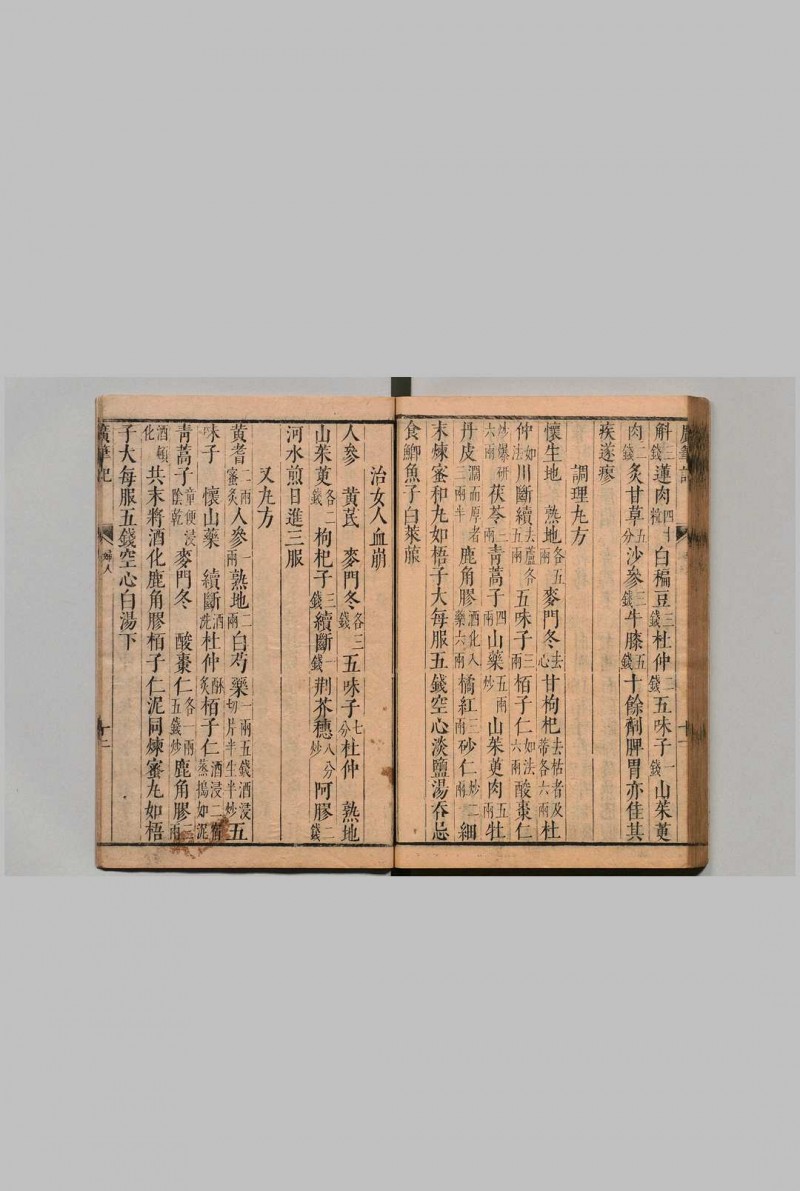 斛三錢蓮肉四十粒白稨豆三錢杜仲二錢五味子一錢山茱萸
肉三錢炙甘草五分沙參三錢牛膝五錢十餘劑脾胃亦佳其
疾遂瘳
調理丸方
懷生地 熟地各五兩麥門冬去心甘枸杞去枯者及蒂各六兩杜
仲如法川斷續去蘆各五兩五味子三兩栢子仁如法六兩酸棗仁
炒爆研六兩茯苓三兩青蒿子四兩山藥五兩炒山茱萸肉五兩牡
丹皮濶而厚者三兩半鹿角膠酒化入藥六兩橘紅三兩砂仁炒二兩細
末煉蜜和丸如梧子大每服五錢空心淡鹽湯吞忌
食鯽魚子白萊菔
治女人血崩
人參 黃芪 麥門冬各三錢五味子七分杜仲 熟地
山茱萸各二錢枸杞子三錢續斷一錢荆芥穗八分炒阿膠二錢
河水煎日進三服
又丸方
黃耆二兩蜜炙人參一兩熟地二兩白芍藥一兩五錢酒浸切片半生半炒五
味子 懷山藥 續斷酒洗杜仲酥炙栢子仁酒浸二宿蒸搗如泥
青蒿子童便浸陰乾麥門冬 酸棗仁各一兩五錢炒鹿角膠三兩
酒頓化共末將酒化鹿角膠栢子仁泥同煉蜜丸如梧
子大每服五錢空心白湯下
廣筆記 婦人 十二